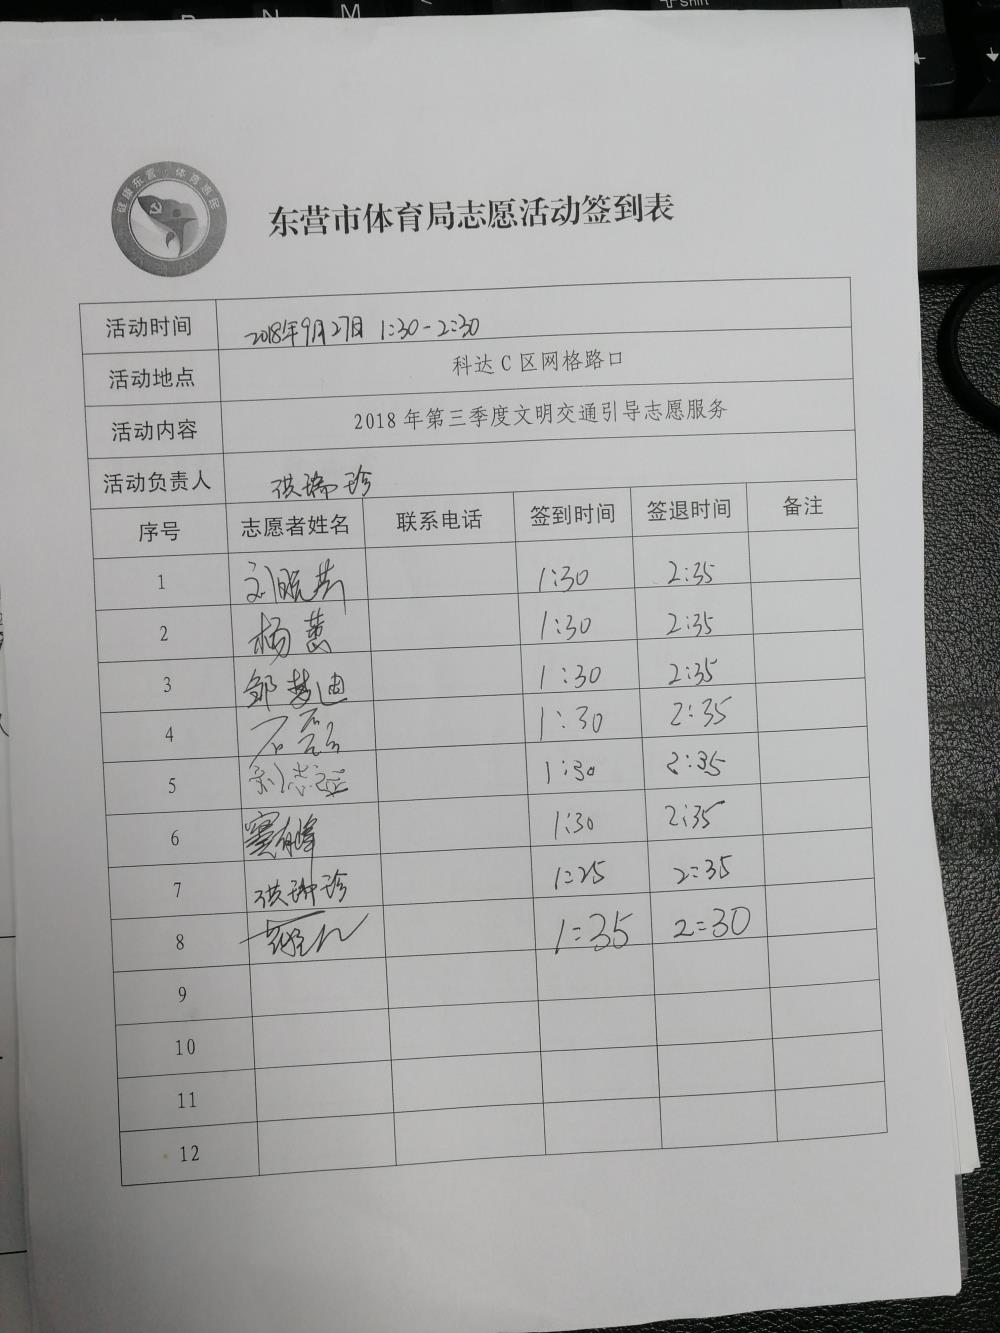 健康东营 体育惠民
东营市体育局志愿活动签到表
活动时间 2018年9月27日 1:30-2:30
活动地点 科达C区网格路口
活动内容 2018年第三季度文明交通引导志愿服务
活动负责人 洪瑞珍
序号 志愿者姓名 联系电话 签到时间 签退时间 备注
1 1:30 2:35
2 杨蕙 1:30 2:35
3 邹梦迪 1:30 2:35
4 石磊 1:30 2:35
5 刘志远 1:30 2:35
6 窦有峰 1:30 2:35
7 洪瑞珍 1:25 2:35
8 1:35 2:30
9
10
11
12